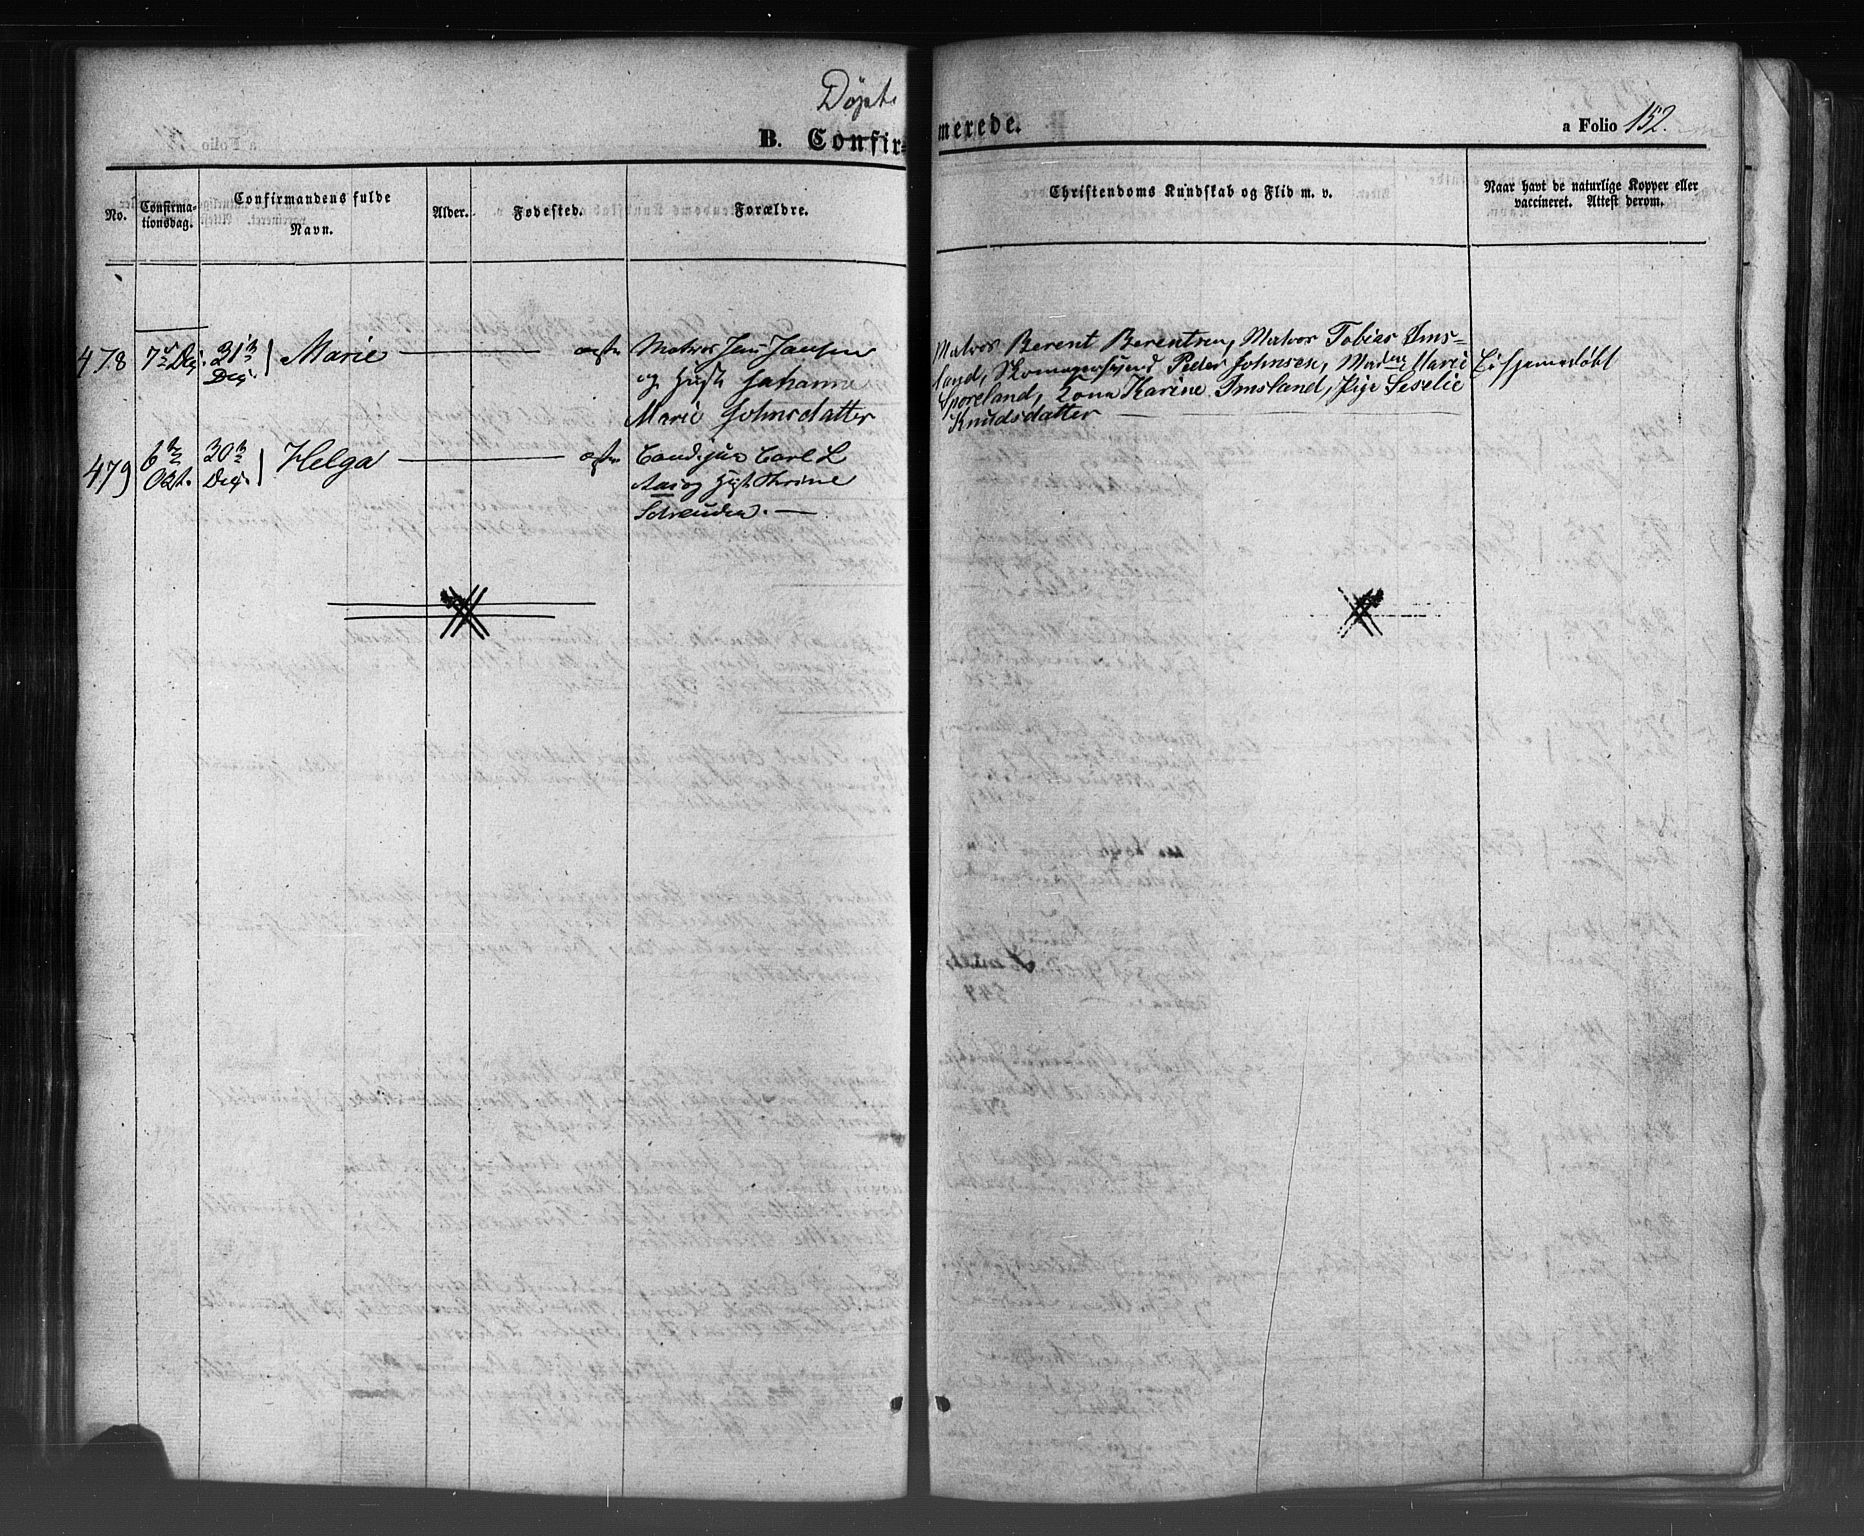 Døpte
B. Confirmerede.
a Folio 152.
No.
Confirma-
tionsdag.
Confirmandens fulde
Navn.
Alder.
Fødested.
Forældre.
Christendoms Kundskab og Flid m. v.
Naar havt de naturlige Kopper eller
vaccineret. Attest derom.
478 7de Dec. 31te Dec. Marie — ægte
Matros Jens Jansen
og Hust Johanne
Marie Johnsdatter
Matros Berent Berentsen, Matros Tobias Ims-
land, Skomagersvend Peder Johnsen, Mad Marie
Sporeland, Kona Karine Imsland, Pige Seselie
Knudsdatter —
Ei hjemmedøbt
479 6te Oct. 30te Dec. Helga — ægte
Cand jur Carl L
Aas og Hust Thrine
Schreuder. —